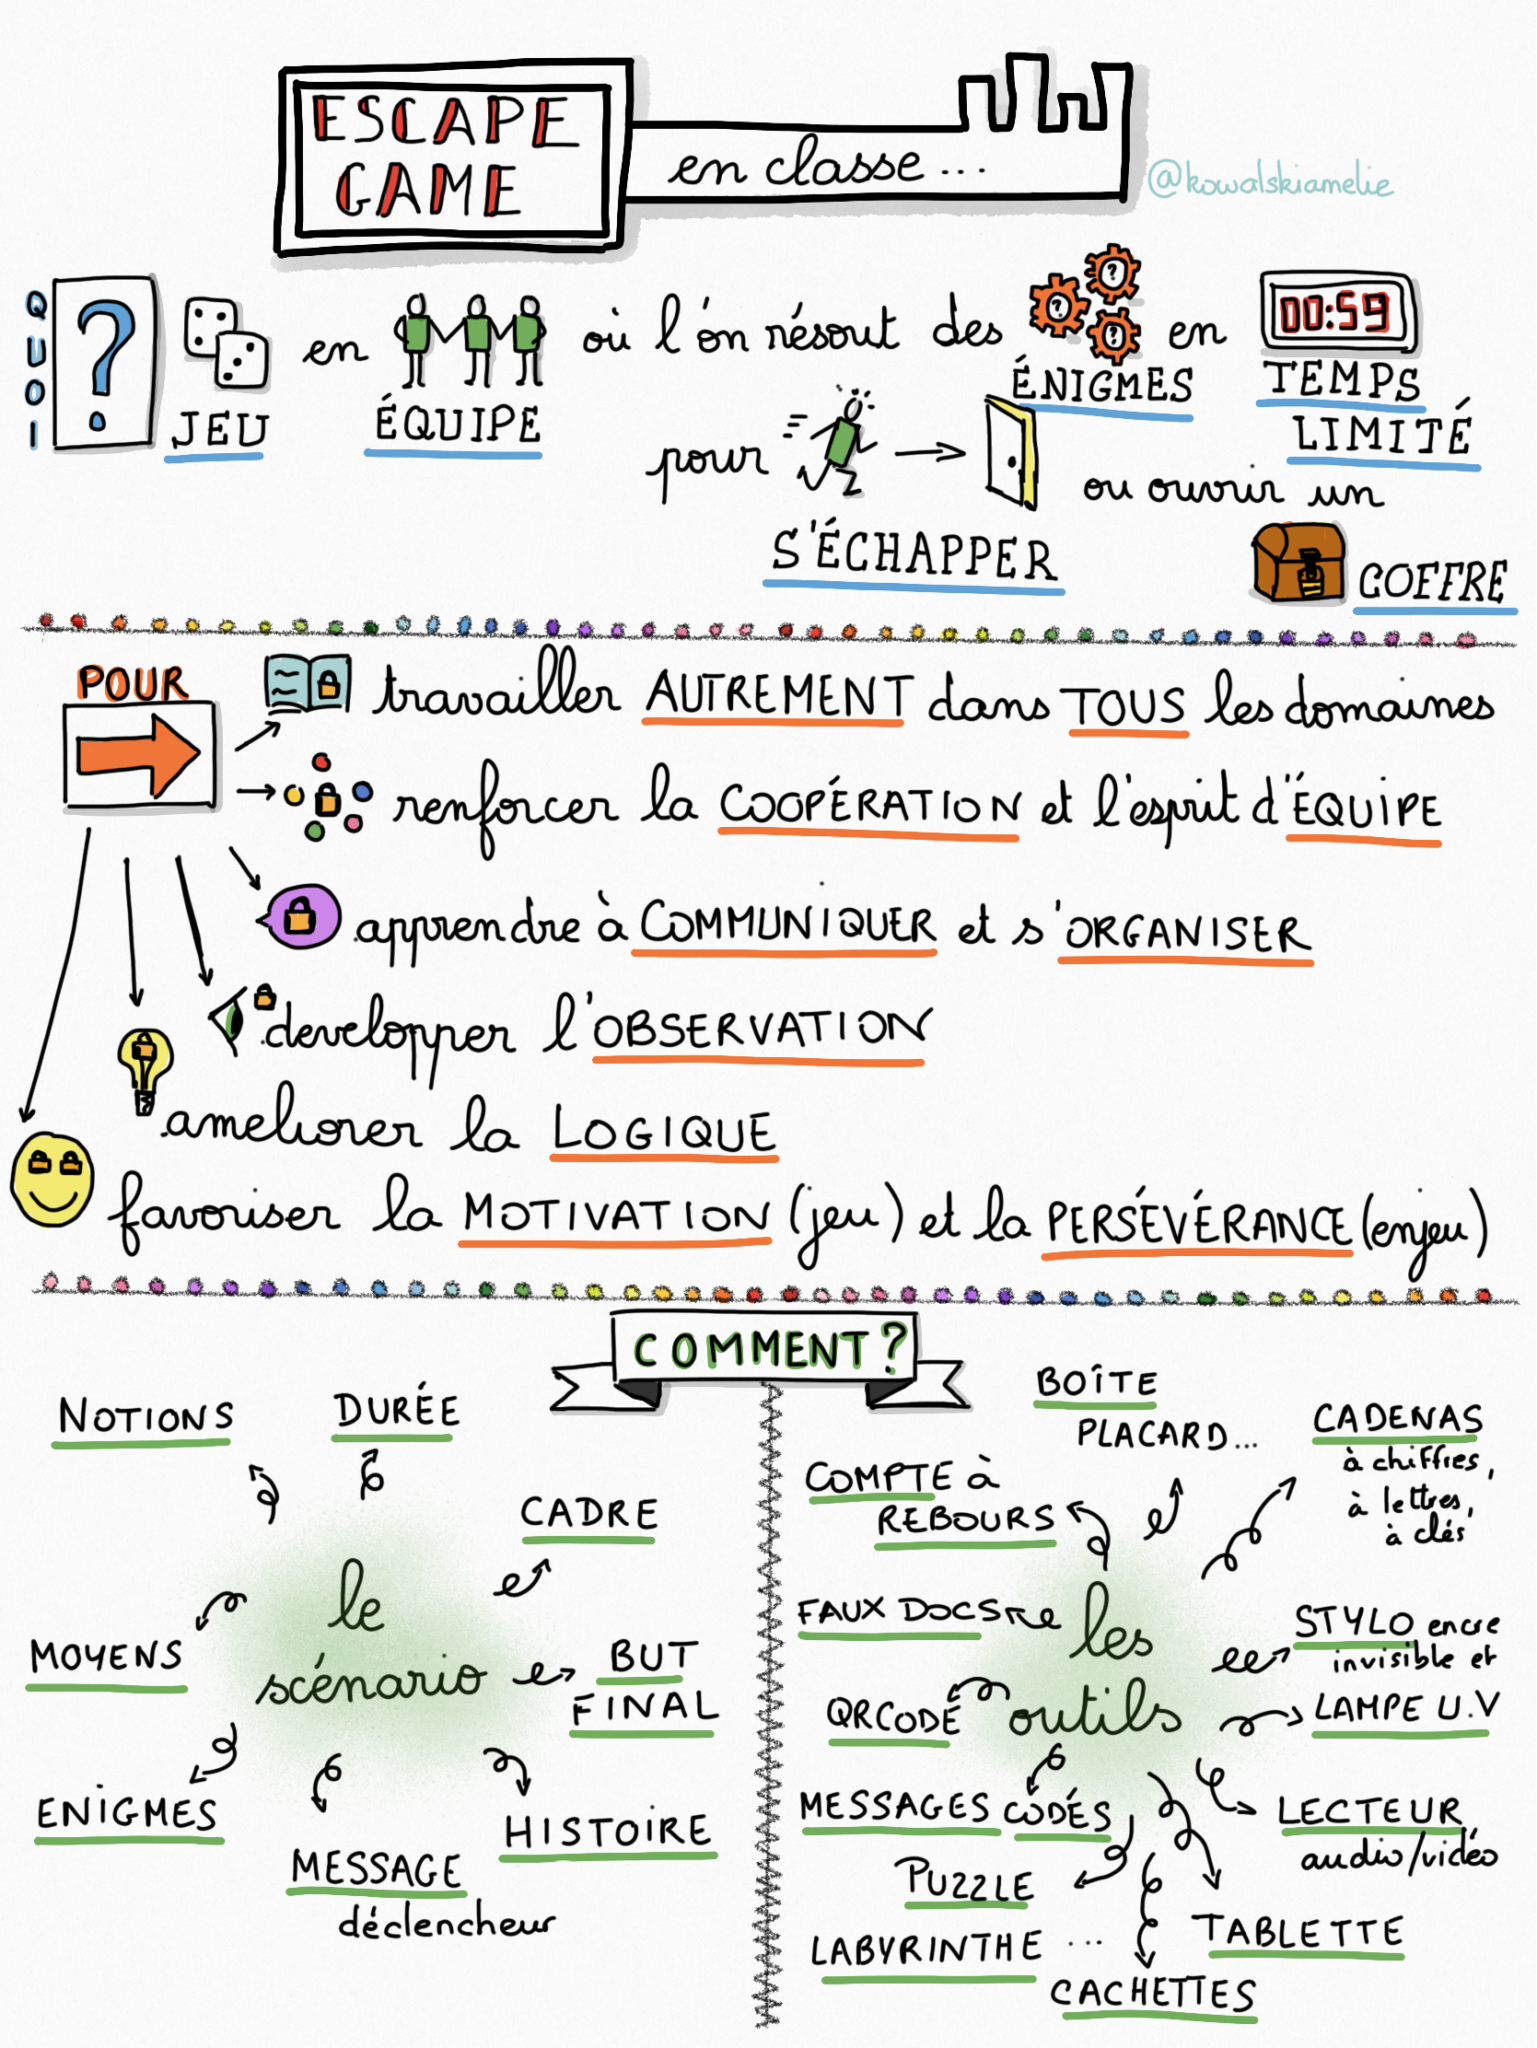 ESCAPE
GAME
en classe...
@kowalskiamelie
QUOI
?
JEU
en
ÉQUIPE
où l'on résout des
? ? ?
ÉNIGMES
en
00:59
TEMPS
LIMITÉ
pour
S'ÉCHAPPER
ou ouvrir un
COFFRE
POUR
travailler AUTREMENT dans TOUS les domaines
renforcer la COOPÉRATION et l'esprit d'ÉQUIPE
apprendre à COMMUNIQUER et s'ORGANISER
developper l'OBSERVATION
ameliorer la LOGIQUE
favoriser la MOTIVATION (jeu) et la PERSÉVÉRANCE (enjeu)
COMMENT?
le
scénario
NOTIONS
DURÉE
CADRE
BUT
FINAL
HISTOIRE
MESSAGE
déclencheur
ENIGMES
MOYENS
les
outils
BOÎTE
PLACARD...
CADENAS
à chiffres,
à lettres,
à clés
COMPTE à
REBOURS
FAUX DOCS
STYLO encre
invisible et
LAMPE U.V
QRCODE
MESSAGES CODÉS
LECTEUR
audio/vidéo
PUZZLE
TABLETTE
LABYRINTHE ...
CACHETTES